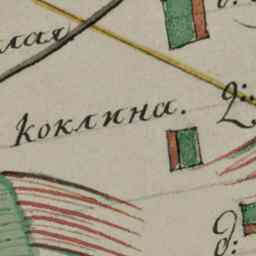 лая.
коклина.
д: